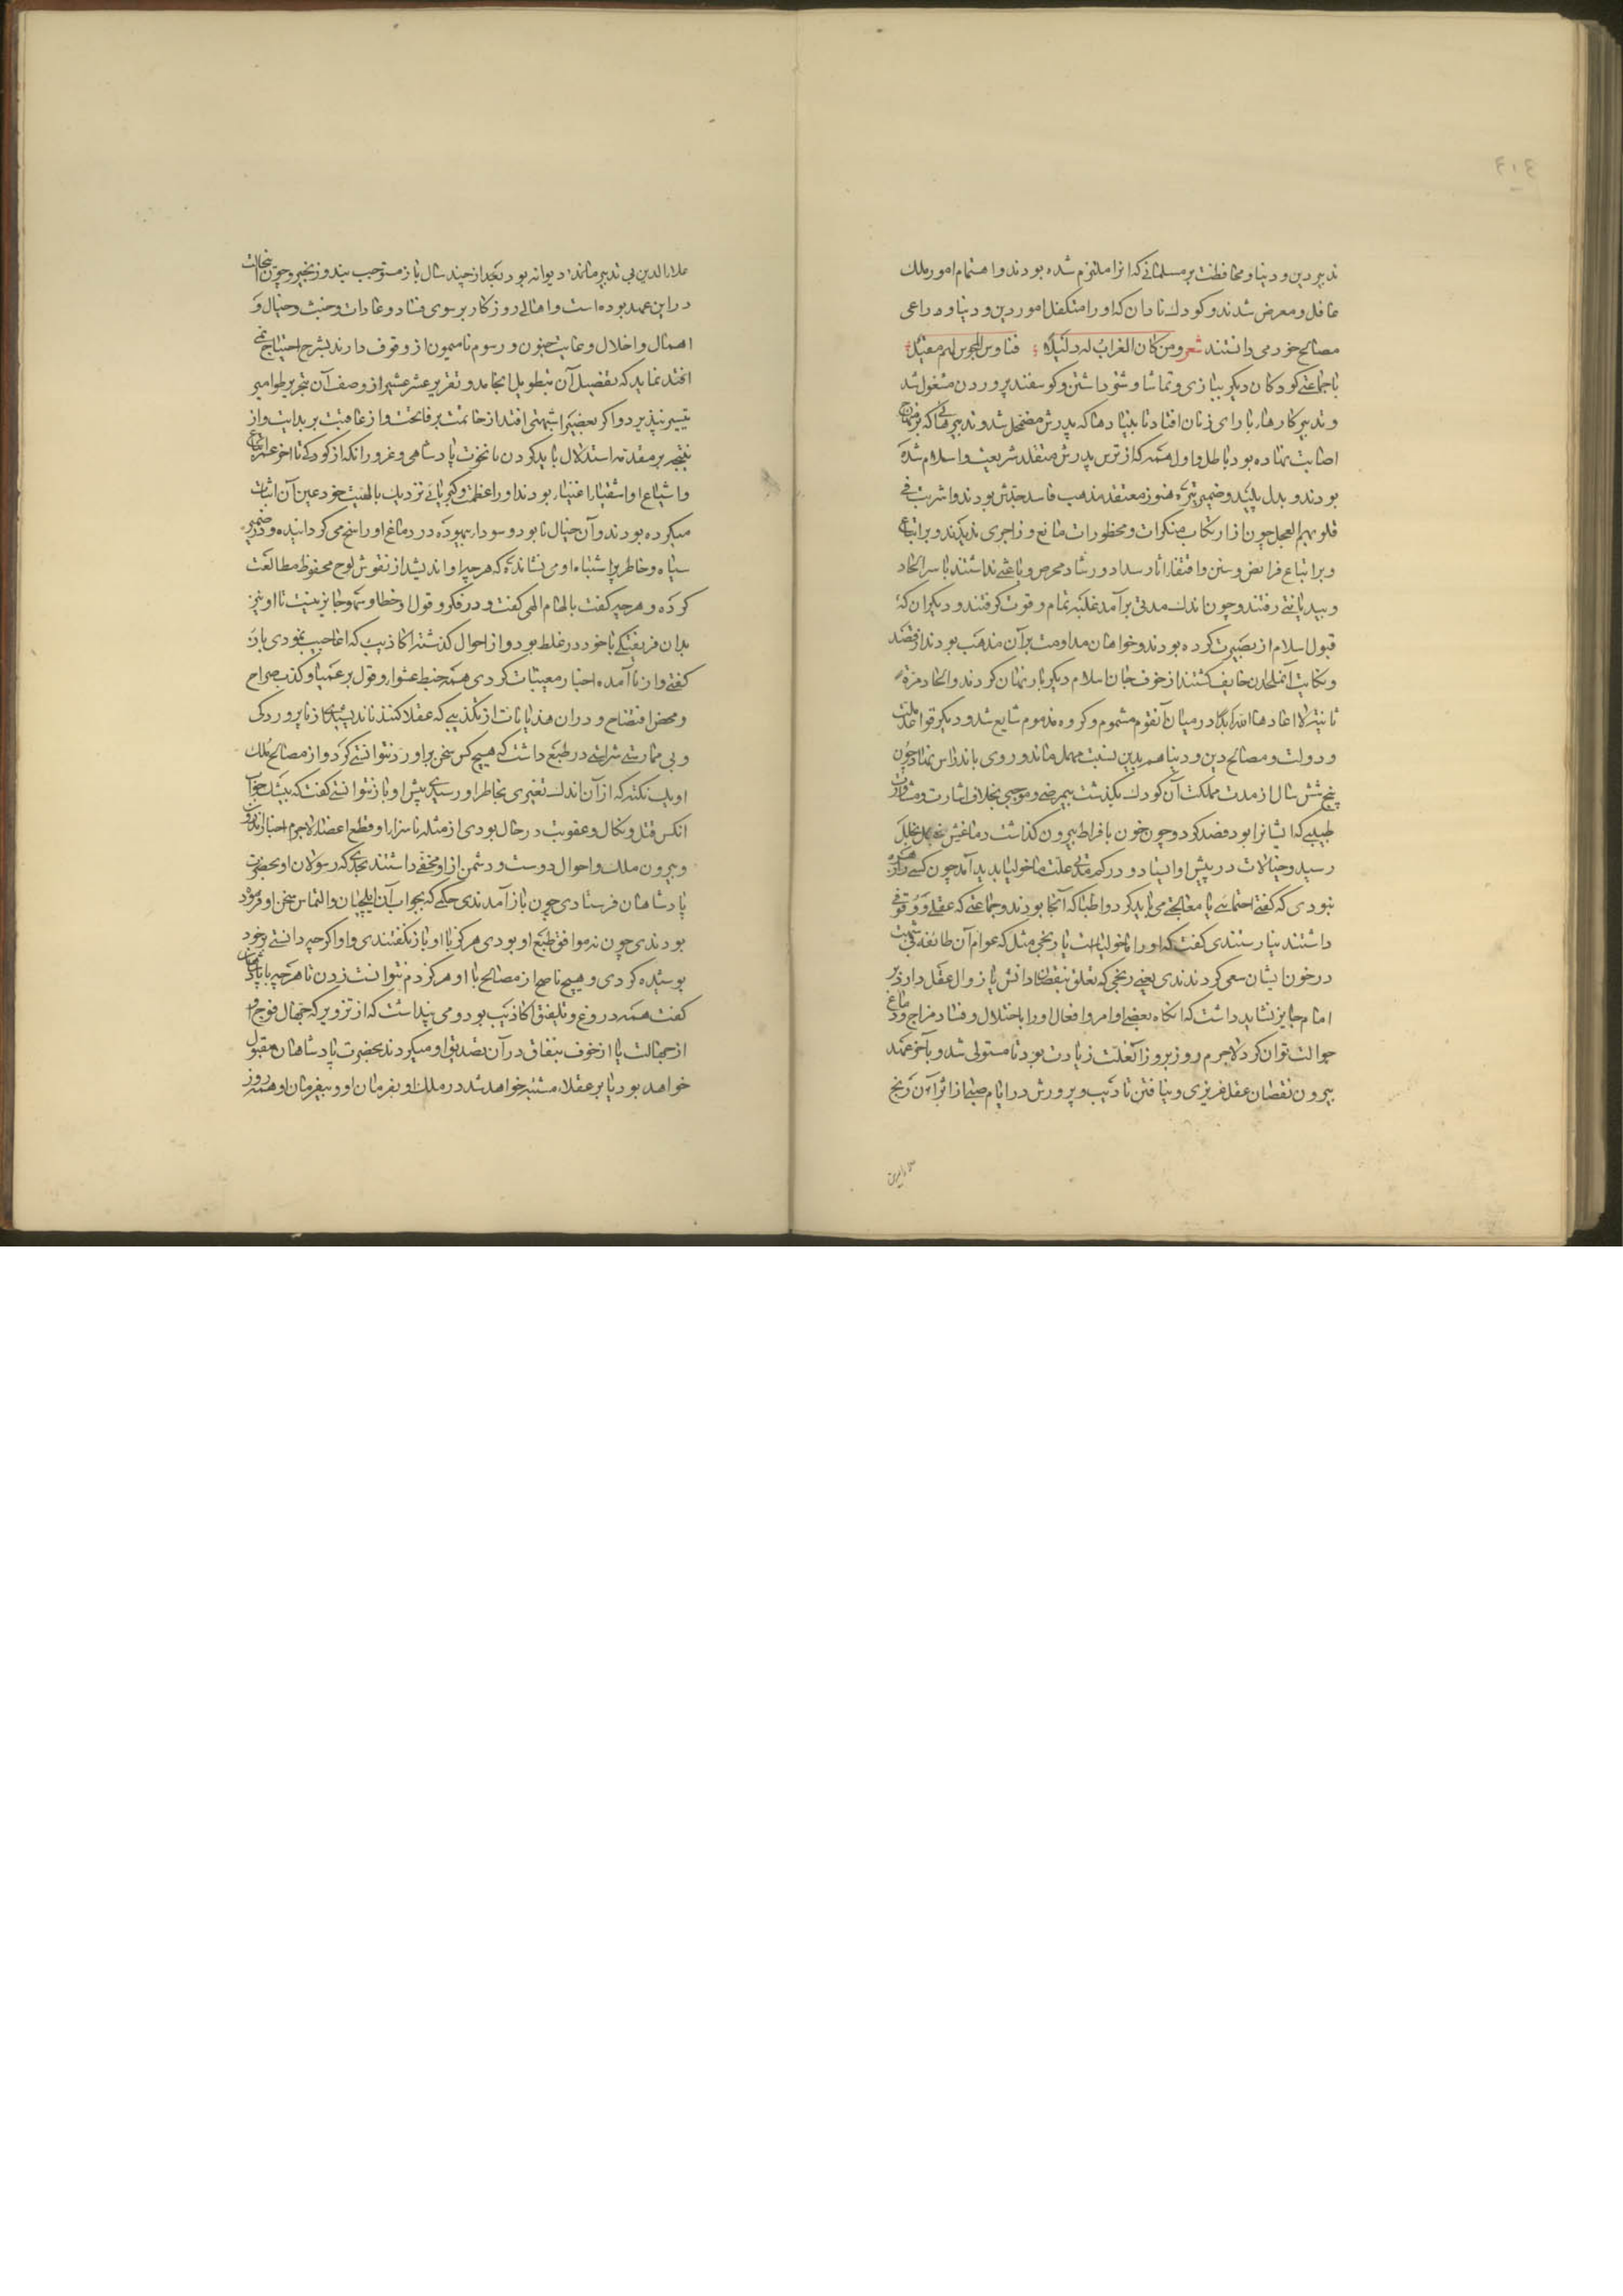 ٤١٤
تدبیر دین و دنیا و محافظت بر مسلمانی که انرا ملتزم شده بودند و اهتمام امور ملک
غافل و معرض شدند و کودک نادان که او را متکفل امور دین و دنیا و داعی
مصالح خود می دانستند شعر و من کان الغراب له دلیلا فناوس المجوس لهم مقیل
با جماعتی کودکان دیکر ببازی و تماشا و شتر داشتن و کوسفند پروردن مشغول شد
و تدبیر کارها با رای زنان افتاد تا بنیادها که پدرش مضمحل شد و تدبیرهائی که بر منهاج
اصابت نهاده بود باطل و اول همه که از ترس پدرش متقلد شریعت و اسلام شده
بودند و بدل پلید و ضمیر تیره هنوز معتقد مذهب فاسد جدش بودند و اشربت فی
قلوبهم العجل چون از ارتکاب منکرات و محظورات مانع و زاجری ندیدند و بر اتباع
و بر اتباع فرایض و سنن و اقتفا اثار سداد و رشاد محرص و باعثی نداشتند با سر الحاد
و بیدیانتی رفتند و چون اندک مدتی برآمد غلبه تمام و قوت کرفتند و دیکران که
قبول اسلام از بصیرت کرده بودند و خواهان مداومت بر آن مذهب بودند از قصد
و نکایت آن ملحدان خایف کشتند از خوف جان اسلام دیکر بار نهان کردند و الحاد مرة
ثانیة لا اعادها الله ابدا در میان آنقوم مشموم و کروه مذموم شایع شد و دیکر قواعد ملت
و دولت و مصالح دین و دنیا هم بدین نسبت مهمل ماند و روی باندراس نهاد و چون
پنج شش سال از مدت مملکت آن کودک بکذشت بیمرضی و موجبی بخلاف اشارت و مشاورت
طبیبی که ایشانرا بود فصد کرد و چون خون بافراط بیرون کذاشت دماغش خلل
رسید و خیالات در پیش او ایستاد و در کم مدتی علت مالخولیا بدید آمد چون کسی را زهره
نبودی که کفتی احتمائی یا معالجتی می باید کرد و اطبا که آنجا بودند و جماعتی که عقلی و وقوفی
داشتند نیارستندی کفت که او را مالخولیاست یا رنجی مثل که عوام آن طائفه بی تهمت
در خون ایشان سعی کردندی یعنی رنجی که تعلق بنقصان دانش یا زوال عقل دارد بر
امام جایز نشاید داشت که انکاه بعضی اوامر و افعال او را باختلال و فساد مزاج و دماغ
حوالت توان کرد لاجرم روز بروز آن علت زیادت بود تا مستولی شد و بآخر عهد
بیرون نقصان عقل غریزی و نیافتن تادیب و پرورش در ایام صبا از اثر آن رنج
علاء الدین بی تدبیر ماند دیوانه بود بعد از چند سال باز مستوجب بند و زنجیر و چون
در این عهد بوده است و اهالی روزکار بر سوی فساد و عادات و خبث و خیال و
اهمال و اخلال و غایت جنون و رسوم نامیمون از وقوف دارند بشرح احتیاج نمی
افتد نماید که تفصیل آن بتطویل انجامد و تقریر عشر عشیر از وصف آن بتحریر طوامیر
تیسیر نپذیرد و اکر بعضی را شبهتی افتد از خاتمت بر فاتحت و از عاقبت بر بدایت و از
نتیجه بر مقدمه استدلال باید کردن با نخوت پادشاهی و غرور انکه از کودکی تا آخر عمر اتباع
و اشیاع او اشقیا را اغنیا بودند او را عظمت و کبریائی نزدیک بالهیت خود عین آن اثبات
میکرده بودند و آن خیال نابود و سوداء بیهوده در دماغ او راسخ می کردانیده و در ضمیر
سیاه و خاطر پر اشتباه او می نشانده که هر چه او اندیشد از نقوش لوح محفوظ مطالعت
کرده و هر چه کفت بالهام الهی کفت و در فکر و قول او خطا و سهو جایز نیست تا او نیز
بدان فریفتکی با خود در غلط بود و از احوال کذشته اکاذیب که اعاجیب نمودی باز
کفتی و از نا آمده اخبار مغیبات کردی همه خبط عشواء و قول بر عمیا و کذب صراح
و محض افتضاح و در ان هذیانات از تکذیبی که عقلا کنند ناندیشیدی از نا پروردکی
و بی ممارستی شراستی در طبع داشت که هیچ کس سخن بر او رد نتوانستی کرد و از مصالح ملک
او یک نکته که از آن اندک تغیری بخاطر او رسیدی پیش او باز نتوانستی کفت که بیشک جواب
انکس قتل و نکال و عقوبت در حال بودی از مثله ناسزاوار و قطع اعضا لاجرم اخبار اندرون
و بیرون ملک و احوال دوست و دشمن ازو مخفی داشتند بحدی که رسولان او بحضرت
پادشاهان فرستادی چون باز آمدندی حکمی که بجواب آن ایلچیان و التماس سخن او فرموده
بودندی چون نه موافق طبع او بودی هرکز با او باز نکفتندی و او اکر چه دانستی بر خود
پوشیده کردی و هیچ ناصح از مصالح با او هرکز دم نتوانست زدن تا هر چه با پادشاهان
کفت همه دروغ و تلفیق اکاذیب بود و می پنداشت که از تزویر که جهال قوم او
از جهالت یا از خوف بنفاق در آن تصدیق او میکردند بحضرت پادشاهان مقبول
خواهد بود یا بر عقلاء مشتبه خواهد شد در ملک او بفرمان او و بیفرمان او همه روز